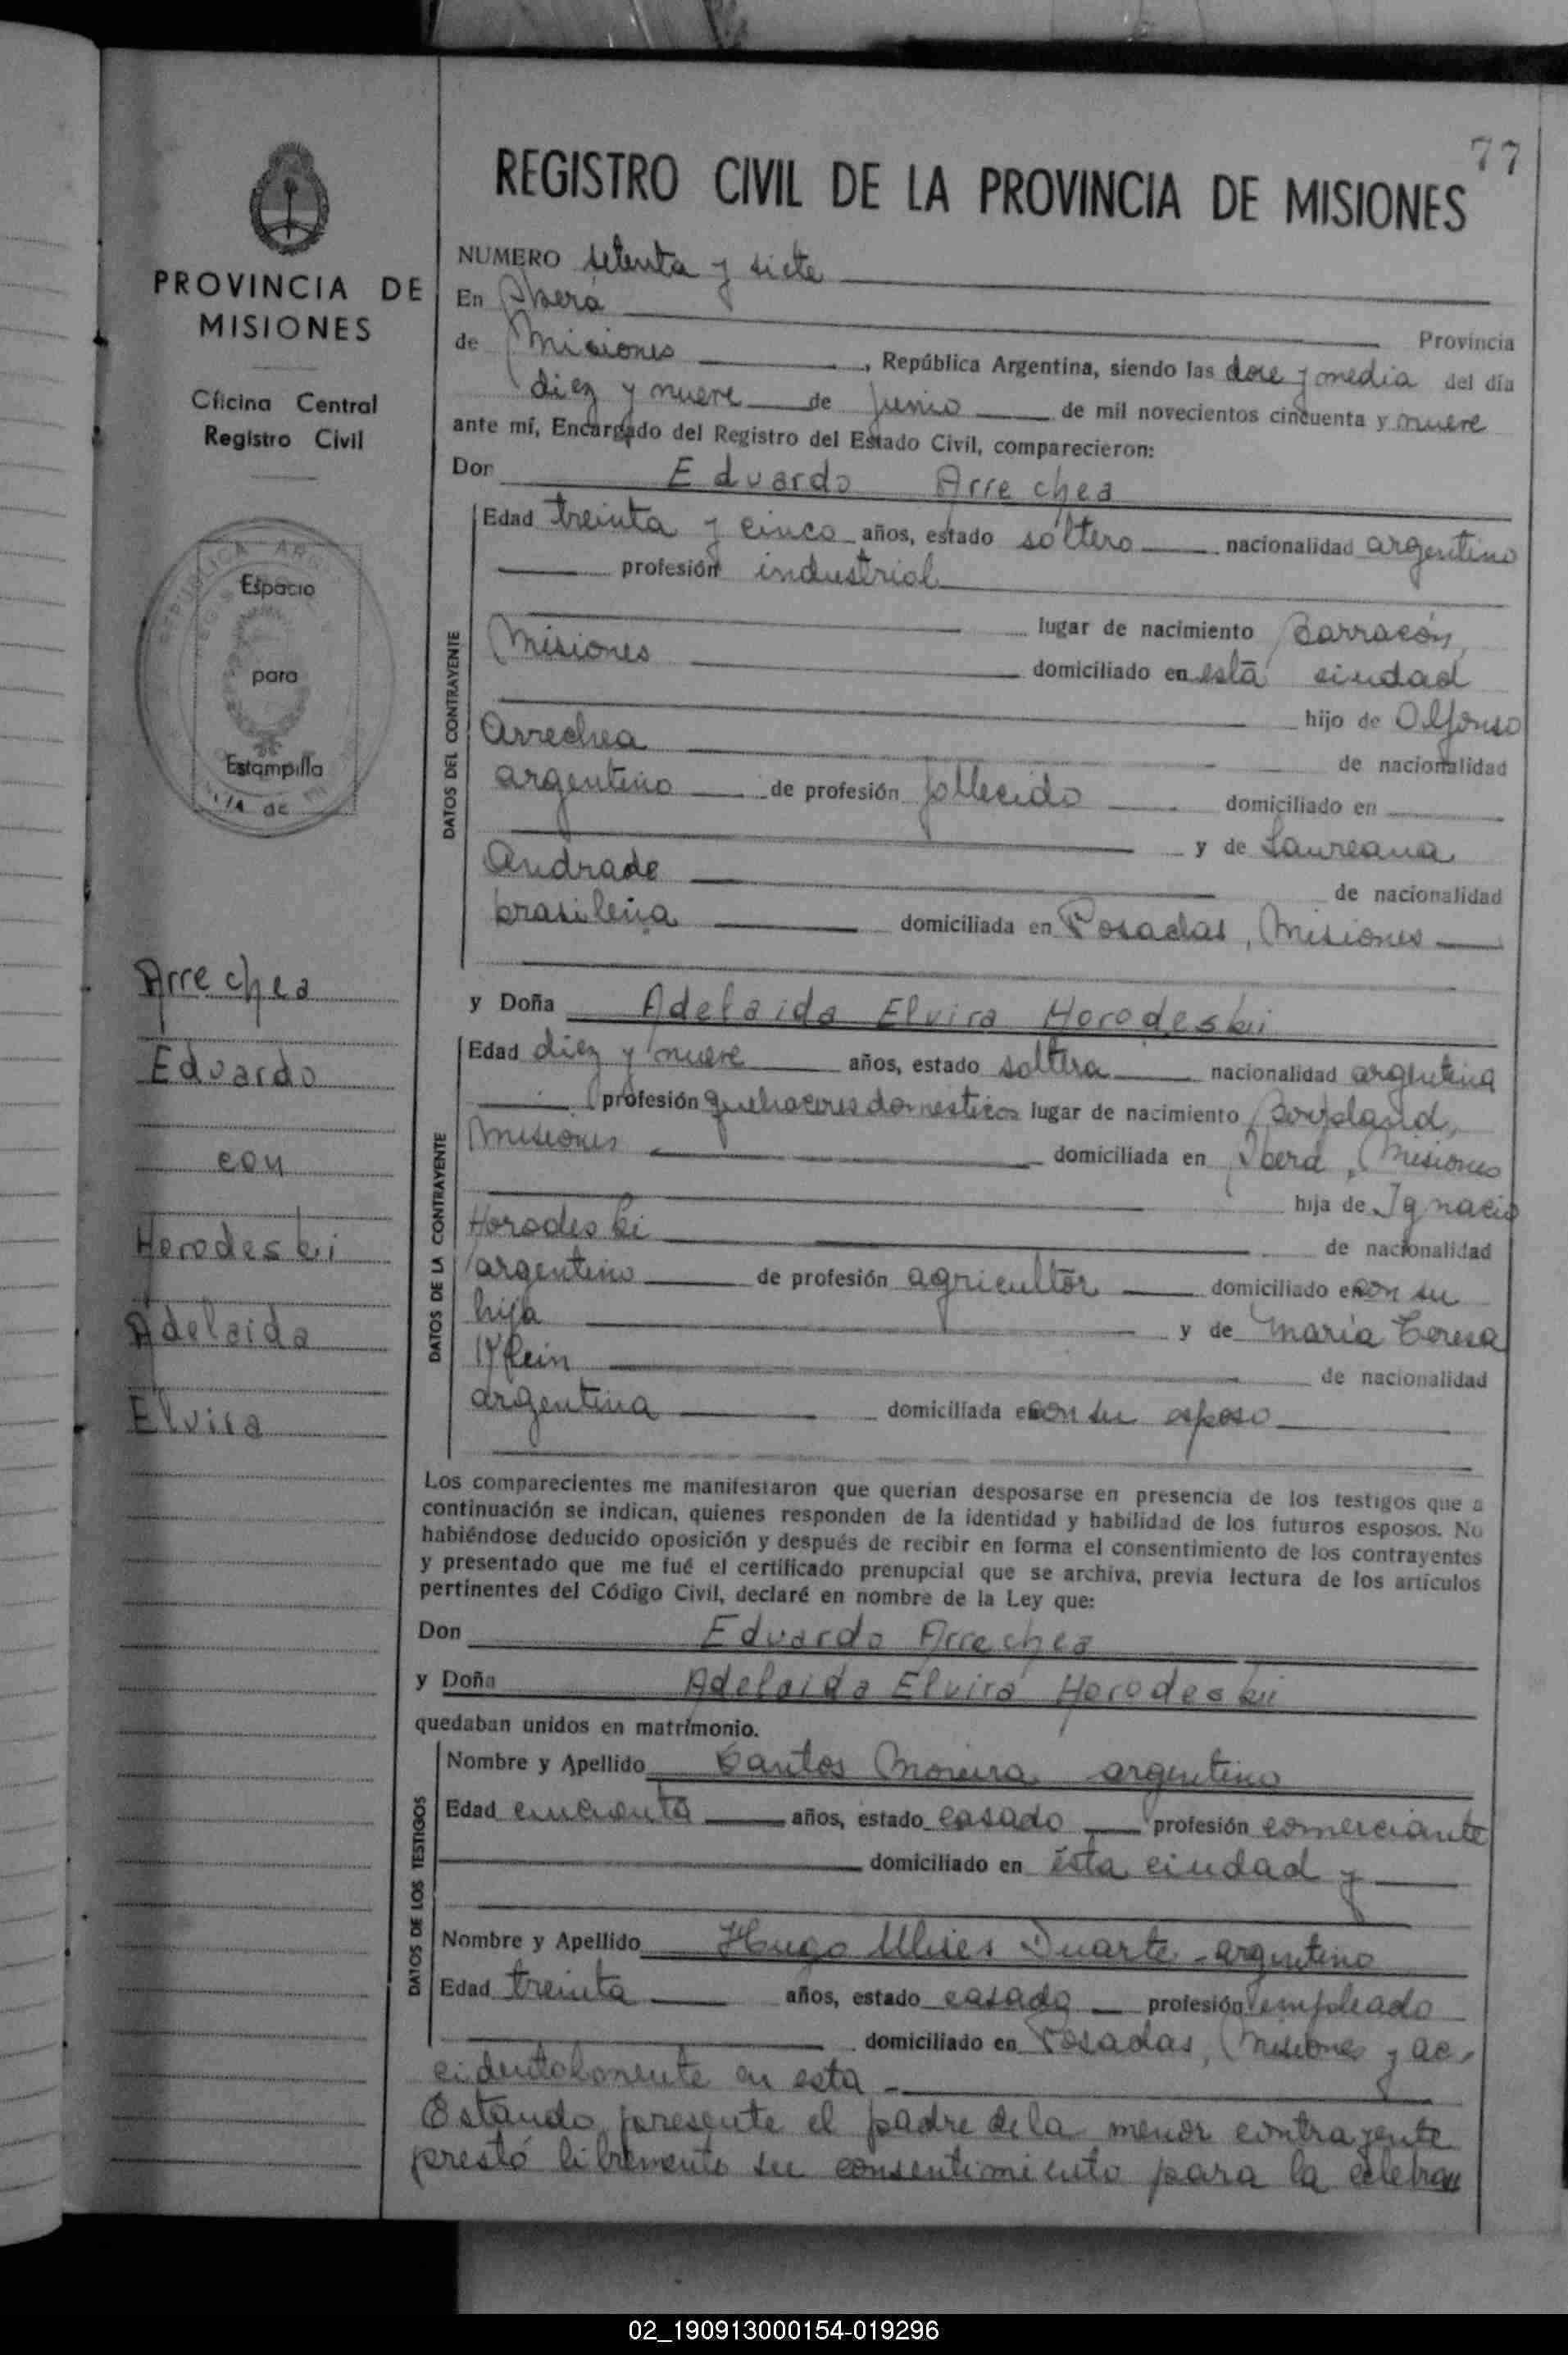 77
REGISTRO CIVIL DE LA PROVINCIA DE MISIONES
PROVINCIA DE
MISIONES
Oficina Central
Registro Civil
Espacio
para
Estampilla
Arrechea
Eduardo
con
Horodeski
Adelaida
Elvira
NUMERO setenta y siete
En Oberá Provincia
de Misiones, República Argentina, siendo las doce y media del día
diez y nueve de junio de mil novecientos cincuenta y nueve
ante mí, Encargado del Registro del Estado Civil, comparecieron:
Don Eduardo Arrechea
DATOS DEL CONTRAYENTE
Edad treinta y cinco años, estado soltero nacionalidad argentino
profesión industrial
lugar de nacimiento Barracón,
Misiones domiciliado en esta ciudad
hijo de Alfonso
Arrechea de nacionalidad
argentino de profesión fallecido domiciliado en
y de Laureana
Andrade de nacionalidad
brasileña domiciliada en Posadas, Misiones
y Doña Adelaida Elvira Horodeski
DATOS DE LA CONTRAYENTE
Edad diez y nueve años, estado soltera nacionalidad argentina
profesión quehaceres domesticos lugar de nacimiento Bonpland,
Misiones domiciliada en Oberá, Misiones
hija de Ignacio
Horodeski de nacionalidad
argentino de profesión agricultor domiciliado en con su
hija y de María Teresa
Klein de nacionalidad
argentina domiciliada en con su esposo
Los comparecientes me manifestaron que querían desposarse en presencia de los testigos que a
continuación se indican, quienes responden de la identidad y habilidad de los futuros esposos. No
habiéndose deducido oposición y después de recibir en forma el consentimiento de los contrayentes
y presentado que me fué el certificado prenupcial que se archiva, previa lectura de los artículos
pertinentes del Código Civil, declaré en nombre de la Ley que:
Don Eduardo Arrechea
y Doña Adelaida Elvira Horodeski
quedaban unidos en matrimonio.
DATOS DE LOS TESTIGOS
Nombre y Apellido Santos Moreira argentino
Edad cincuenta años, estado casado profesión comerciante
domiciliado en ésta ciudad y
Nombre y Apellido Hugo Ulises Duarte - argentino
Edad treinta años, estado casado profesión empleado
domiciliado en Posadas, Misiones y ac
cidentalmente en esta
Estando presente el padre de la menor contrayente
prestó libremente su consentimiento para la celebra
02_190913000154-019296